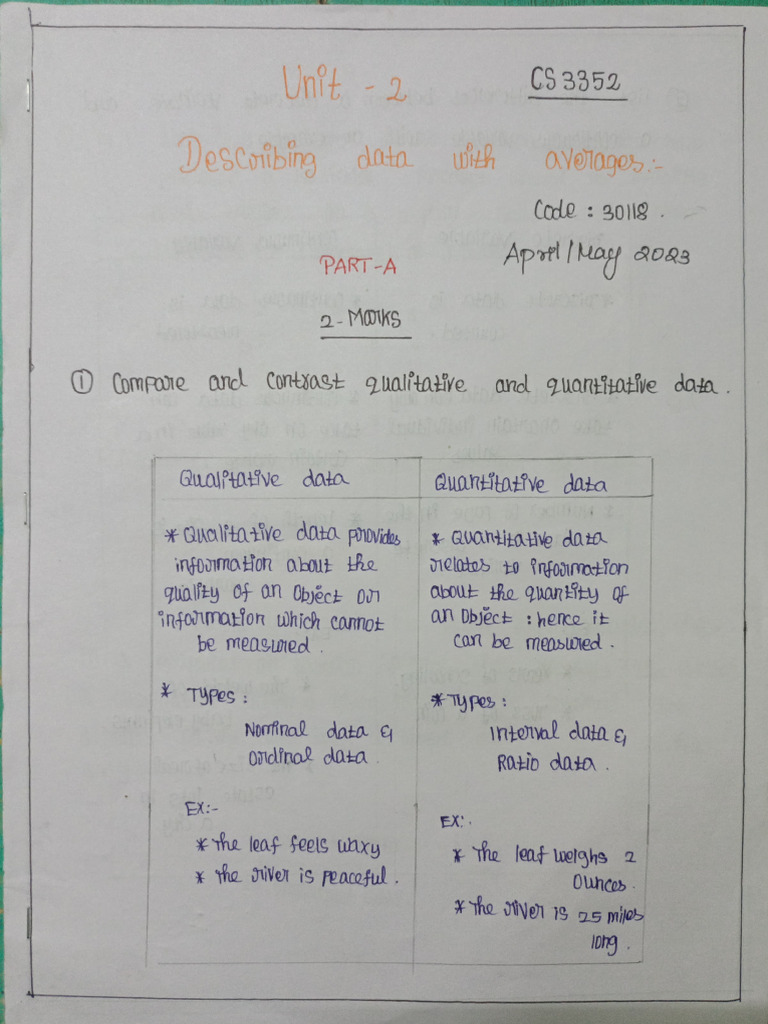 Unit - 2
CS3352
Describing data with averages:-
Code : 30118.
April/May 2023
PART-A
2-Marks
① Compare and contrast qualitative and quantitative data.
Qualitative data
* Qualitative data provides
information about the
quality of an object or
information which cannot
be measured.
* Types:
Nominal data &
ordinal data.
EX:-
* the leaf feels waxy
* the river is peaceful.
Quantitative data
* Quantitative data
relates to information
about the quantity of
an object : hence it
can be measured.
* Types:
Interval data &
Ratio data.
EX:-
* The leaf weighs 2
ounces.
* the river is 25 miles
long.